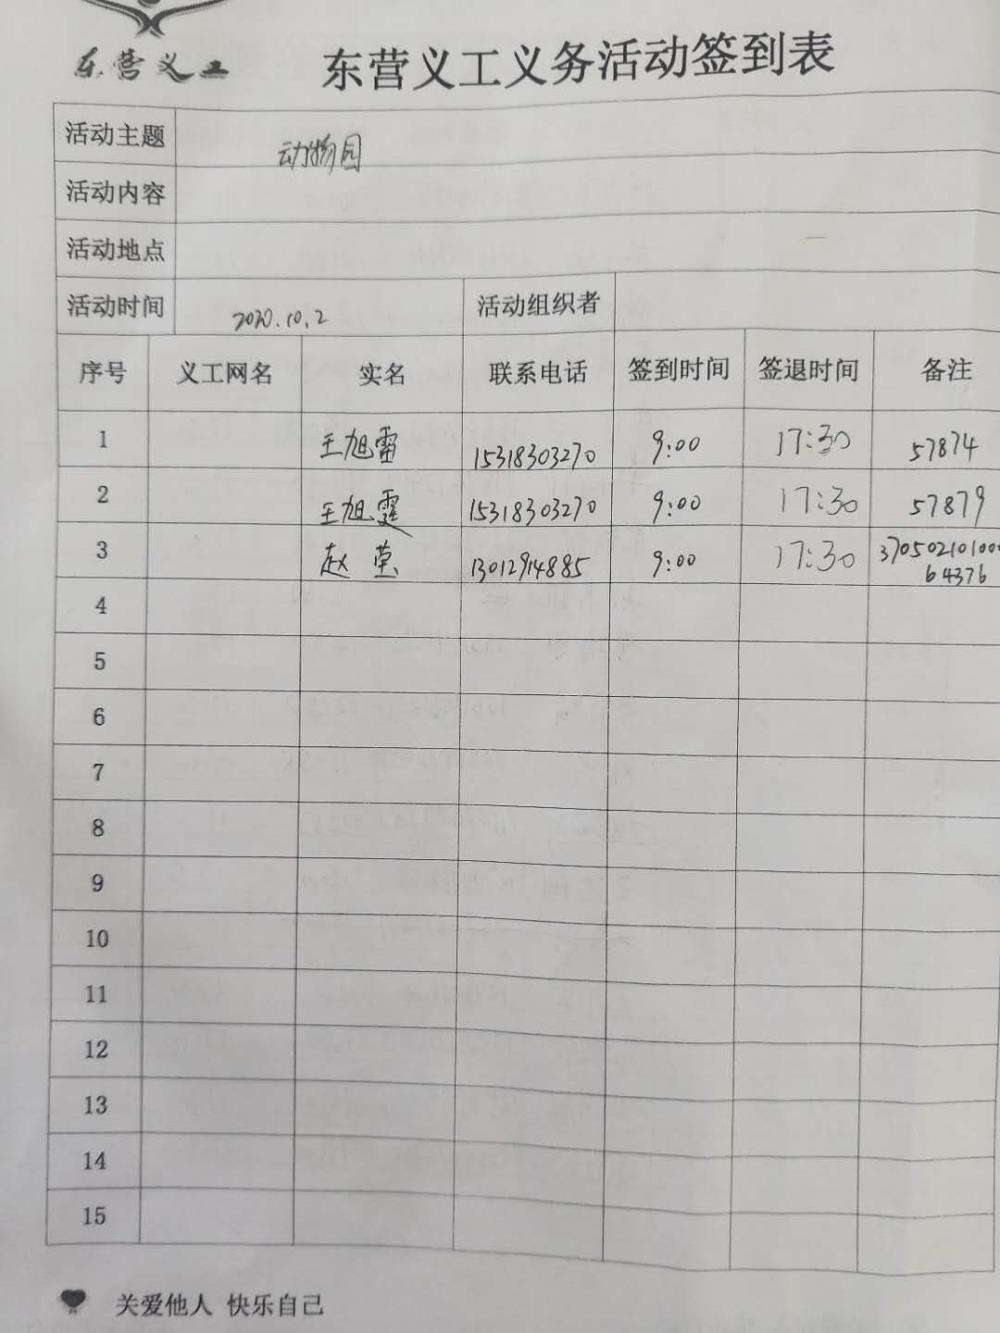 东营义工
东营义工义务活动签到表
活动主题 动物园
活动内容
活动地点
活动时间 2020.10.2 活动组织者
序号 义工网名 实名 联系电话 签到时间 签退时间 备注
1 王旭雷 15318303270 9:00 17:30 57874
2 王旭霆 15318303270 9:00 17:30 57879
3 赵莹 13012914885 9:00 17:30 370502101000
64376
4
5
6
7
8
9
10
11
12
13
14
15
关爱他人 快乐自己